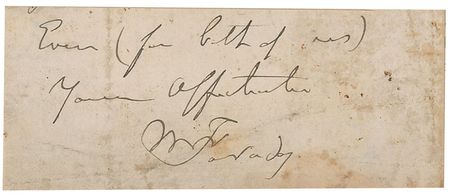 Ever (for both of us)
Yours Affectionately
M Faraday